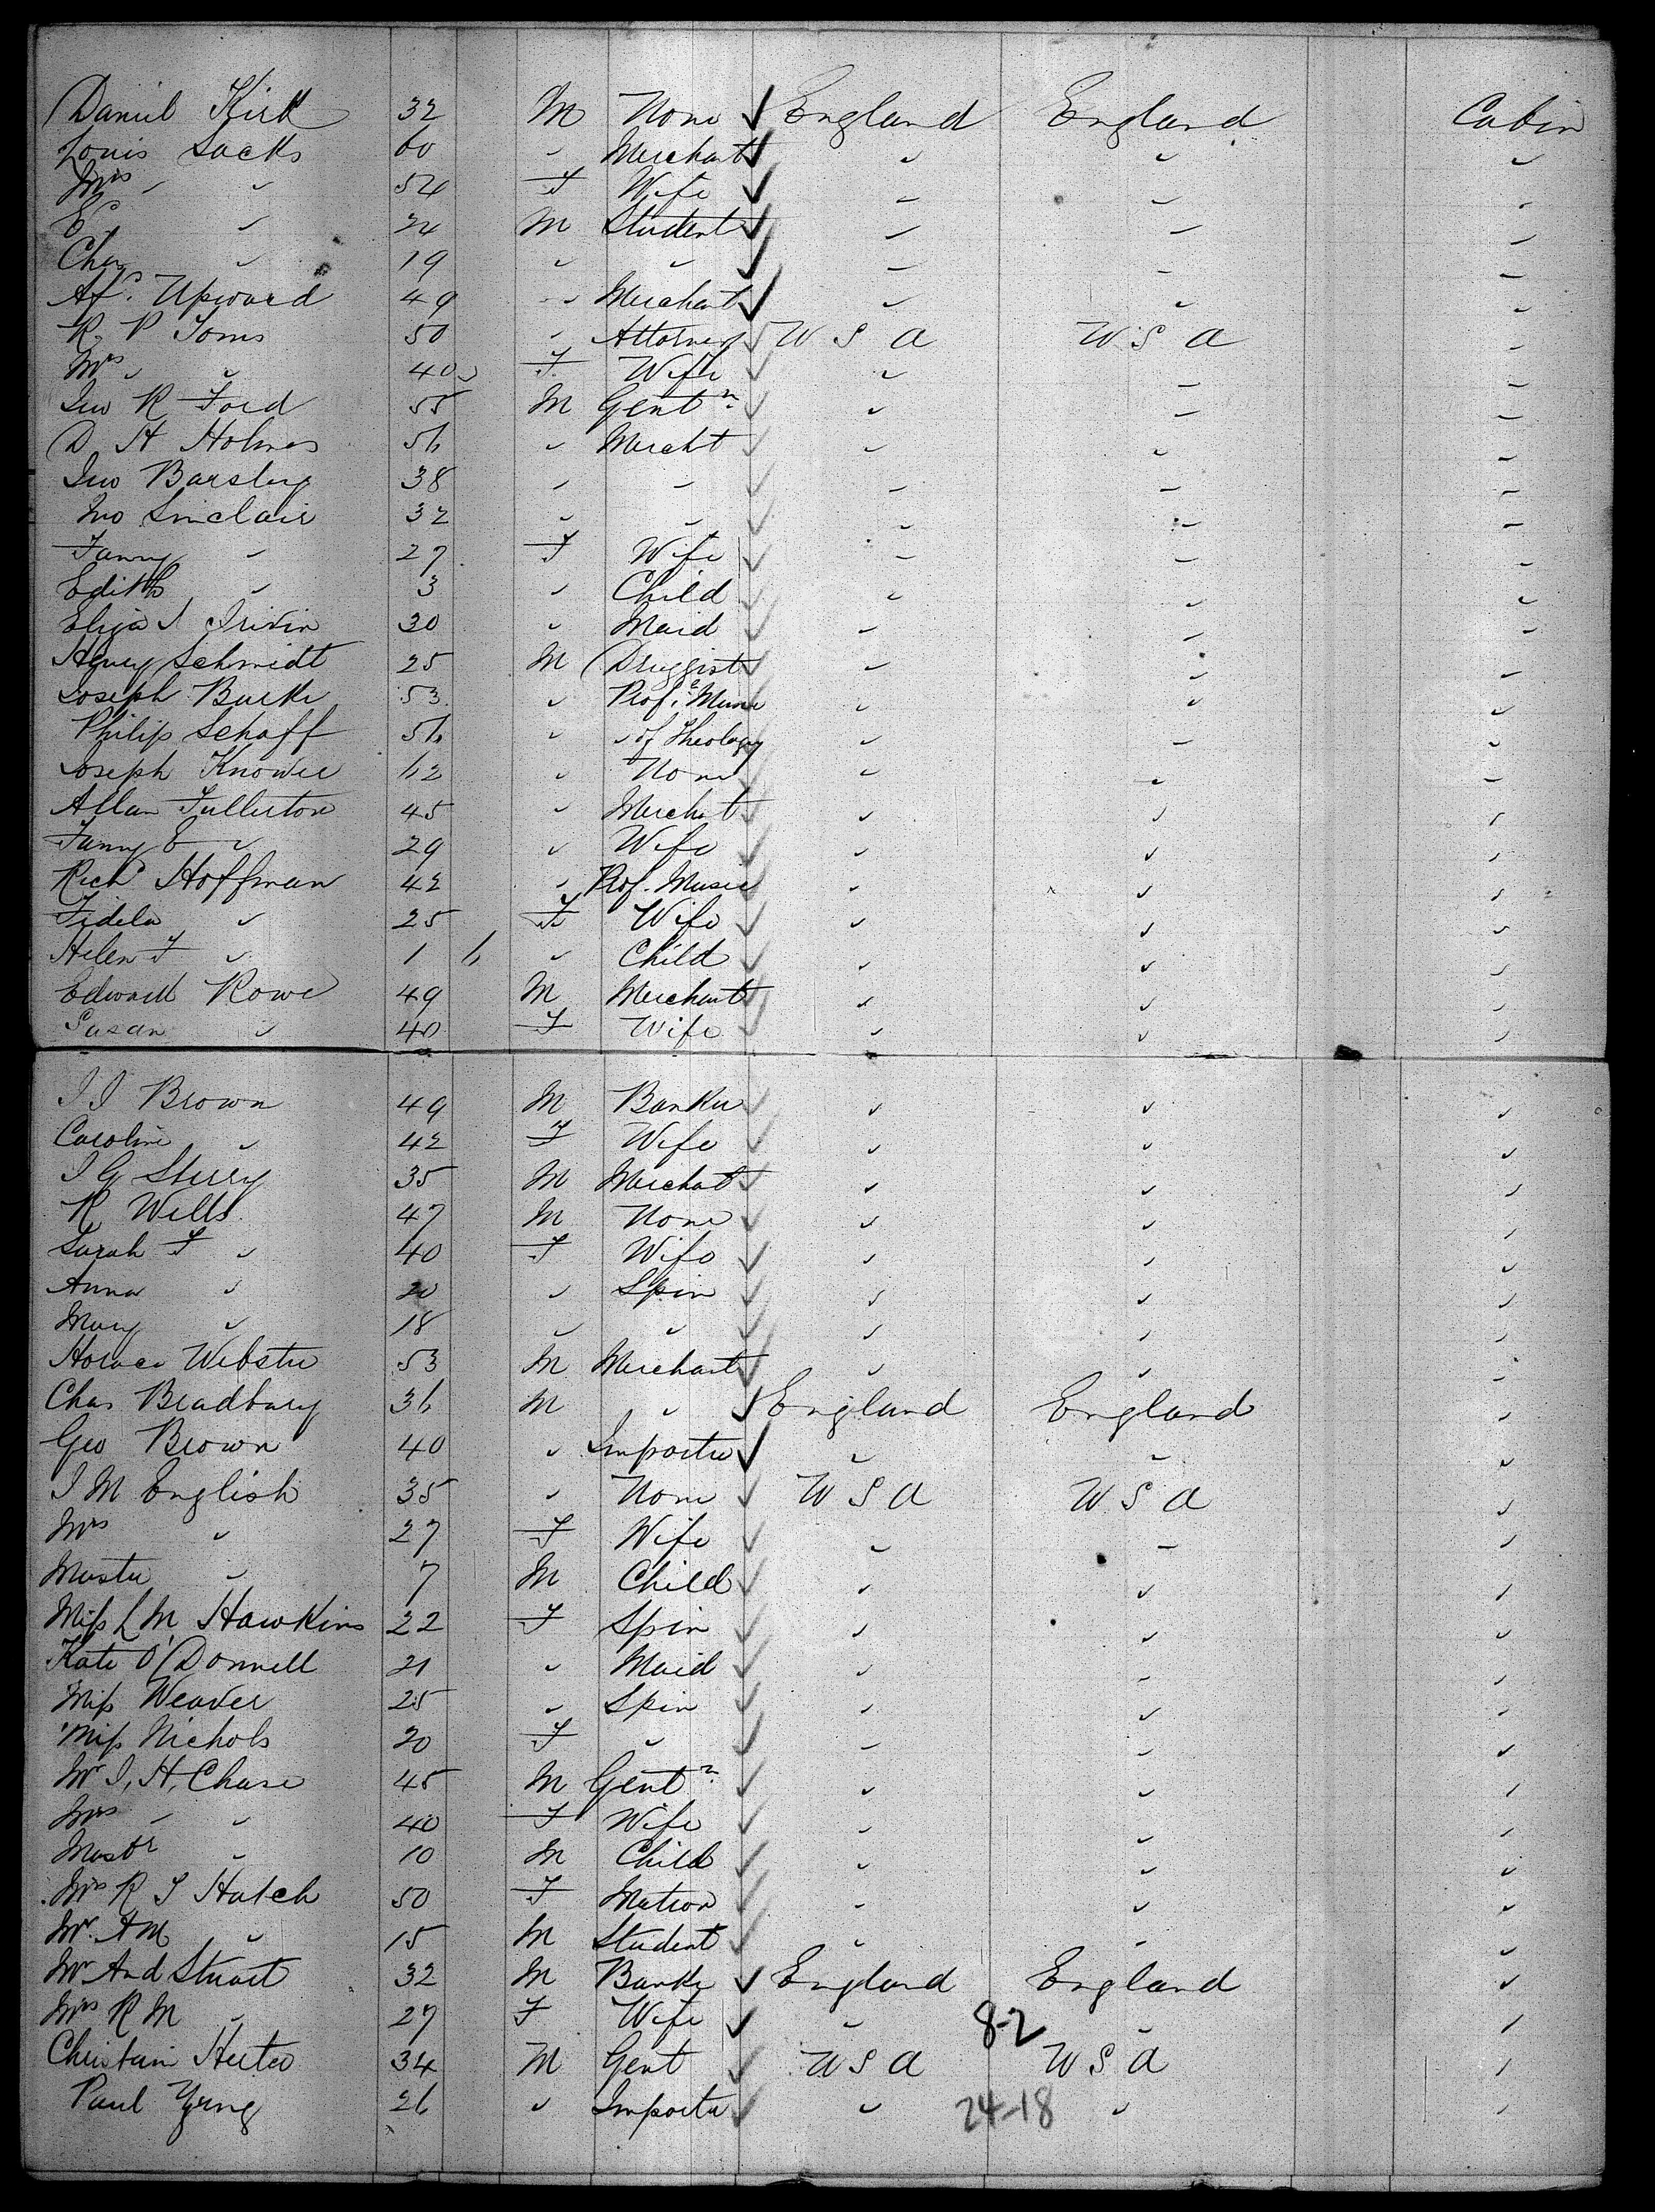 Daniel Kirk 32 M None England England Cabin
Louis Sacks 60 " Merchant " " "
Mrs " " 54 F Wife " " "
E " 24 M Student " " "
Chas " 19 " " " " "
Upward 49 " Merchant " " "
R. P Toms 50 " Attorney U S A U S A "
Mrs " " 40 F Wife " " "
Geo R Ford 55 M Gentn " " "
D. H Holmes 56 " Mercht " " "
Geo Barsley 38 " " " " "
Jno Sinclair 32 " " " " "
Fanny " 27 F Wife " " "
Edith " 3 " Child " " "
Eliza J Irivin 30 " Maid " " "
Henry Schmidt 25 M Druggist " " "
Joseph Burke 53 " Prof. Music " " "
Philip Schaff 56 " " of Theology " " "
Joseph Knower 62 " None " " "
Allan Fullerton 45 " Merchat " " "
Fanny E " 29 " Wife " " "
Richd Hoffman 42 " Prof. Music " " "
Fidela " 25 F Wife " " "
Helen F " 1 6 " Child " " "
Edward Rowe 49 M Merchant " " "
Susan " 40 F Wife " " "
J J Brown 49 M Banker " " "
Caroline " 42 F Wife " " "
J G Sterry 35 M Merchat " " "
R Wells 47 M None " " "
Sarah F " 40 F Wife " " "
Anna " 20 " Spin " " "
Mary " 18 " " " " "
Horace Webster 53 M Merchant " " "
Chas Bradbury 36 M " England England "
Geo Brown 40 " Importer " " "
J M English 35 " None U S A U S A "
Mrs " 27 F Wife " " "
Master " 7 M Child " " "
Miss L M Hawkins 22 F Spin " " "
Kate O'Donnell 21 " Maid " " "
Miss Weaver 25 " Spin " " "
Miss Nichols 20 F " " " "
Mr J, H, Chase 45 M Gentn " " "
Mrs " " 40 F Wife " " "
Mastr " 10 M Child " " "
Mrs R S Hatch 50 F Matron " " "
Mr. A M " 15 M Student " " "
Mr And Stuart 32 M Banker England England "
Mrs R M " 27 F Wife " 8-2 " "
Christian Herter 34 M Gent U S A U S A "
Paul Yung 26 " Importer " 24-18 " "